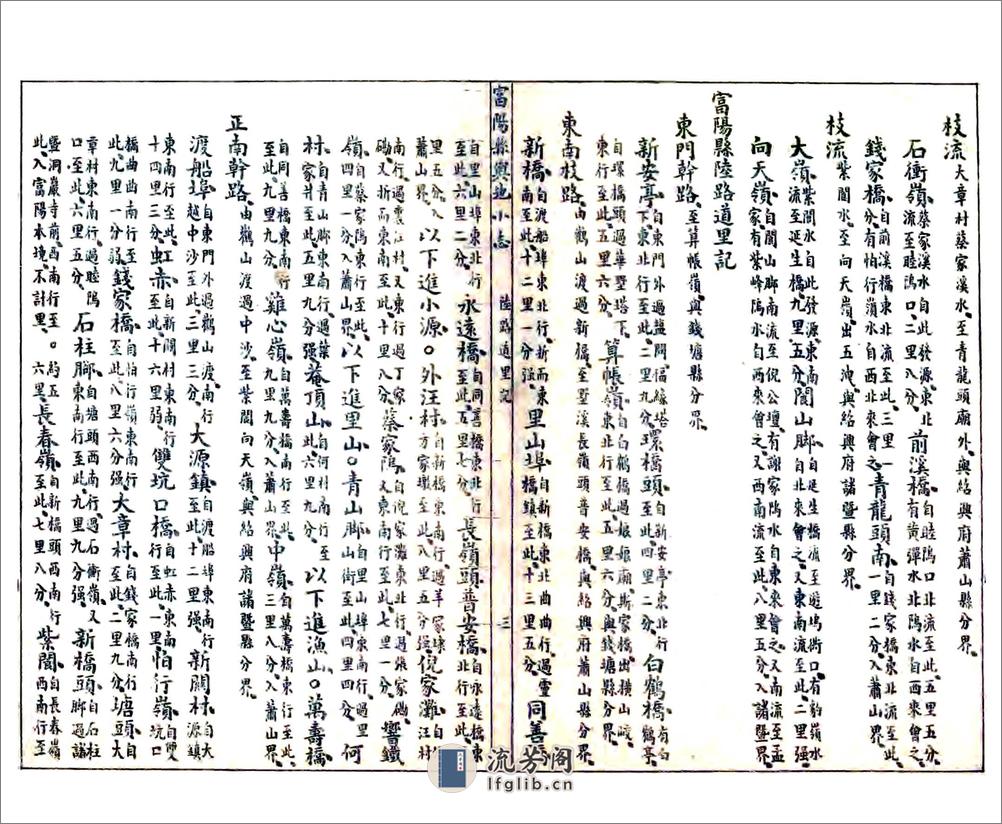 枝流大章村蔡家溪水、至青龍頭廟外、與紹興府蕭山縣分界、
石衝嶺蔡家溪水自此發源、東北流至睦塢口、二里八分、前溪橋自睦塢口北流至此、五里五分、有黃彈水、北塢水自西來會之、
錢家橋自前溪橋東北流至此、三里一分、有怕行嶺水自西北來會之、青龍頭南一里二分、入蕭山界、
枝流紫閬水、至向天嶺出五洩、與紹興府諸暨縣分界、
大嶺紫閬水自此發源、東南流至延生橋、九里五分、閬山腳自延生橋流至遊塢衕口、有豹嶺水自北來會之、又東南流至此、二里强、
向天嶺自閬山腳南流至倪公壇、有謝家塢水自東來會之、又南流至孟家、有紫峰塢水自西來會之、又西南流至此、八里五分、入諸暨界、
富陽縣陸路道里記
東門幹路、至算帳嶺、與錢塘縣分界、
新安亭自東門外過鹽關福緣塔下、東北行至此、二里九分、環橋頭自新安亭東北行至此、四里二分、白鶴橋有白鶴亭、
自環橋頭過華墅塔下、東行至此、五里六分、算帳嶺自白鶴橋過娘娘廟、斯家橋出橫山畈、東北行至此、五里六分、與錢塘縣分界、
東南枝路、由鸛山渡過新橋、至墅溪長嶺頭普安橋、與紹興府蕭山縣分界、
新橋自渡船埠東北行、折而東至此、十二里一分强、里山埠自新橋東北曲曲行、過靈橋鎮至此、十三里五分、同善橋
富陽縣輿地小志 陸路道里記 三
自里山埠東北行至此、六里二分、永遠橋自同善橋東北行至此、五里七分、長嶺頭普安橋自永遠橋東北行至此、
里五分、入蕭山界、以下進小源。外汪村自新橋東南行、過羊家埭、方家墩至此、八里五分强、倪家灘自外汪村
南行、過雲江村、又東行過丁家礀、又折而東南至此、十里八分、蔡家塢自倪家灘東北行、過張家礀、又東南行至此、七里一分、響鐵
嶺自蔡家塢東行至此、四里一分、入蕭山界、以下進里山。青山腳自里山埠東南行過里山街至此、四里四分、何
村自青山腳東南行、過葉家井至此、五里九分强、菴頂山自何村南行至此、六里九分、以下進漁山。萬壽橋
自同善橋東南行至此、九里九分、雞心嶺自萬壽橋南行至此、九里九分、入蕭山界、中嶺自萬壽橋東行至此、三里八分、入蕭山界、
正南幹路、由鸛山渡過中沙、至紫閬向天嶺、與紹興府諸暨縣分界、
渡船埠自東門外過鸛山渡、南行越中沙至此、三里三分、大源鎮自渡船埠東南行至此、十二里强、新關村自大源鎮
東南行至此、十四里三分、虹赤自新關村東南行至此、十六里弱、雙坑口橋自虹赤東南行至此、一里、怕行嶺自雙坑口
橋曲曲南行至此、九里一分弱、錢家橋自怕行嶺東南行至此、八里六分强、大章村自錢家橋東南行至此、二里九分、塘頭自大
章村東南行、過睦塢口至此、六里五分、石柱腳自塘頭西南行、過石衝嶺、又東南行至此、九里九分、新橋頭自石柱腳過諸
暨洞巖寺前、西南行至此、入富陽本境、不計里、約五六里、長春嶺自新橋頭西南行至此、七里八分、紫閬自長春嶺西南行至
流芳閣
lfglib.cn